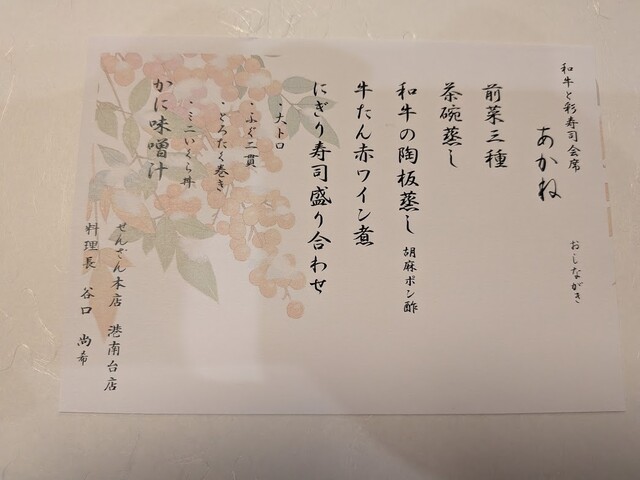 和牛と彩寿司会席
あかね
おしながき
前菜三種
茶碗蒸し
和牛の陶板蒸し 胡麻ポン酢
牛たん赤ワイン煮
にぎり寿司盛り合わせ
・大トロ
・ふぐ二貫
・とろたく巻き
・ミニいくら丼
かに味噌汁
せんざん本店 港南台店
料理長 谷口 尚希